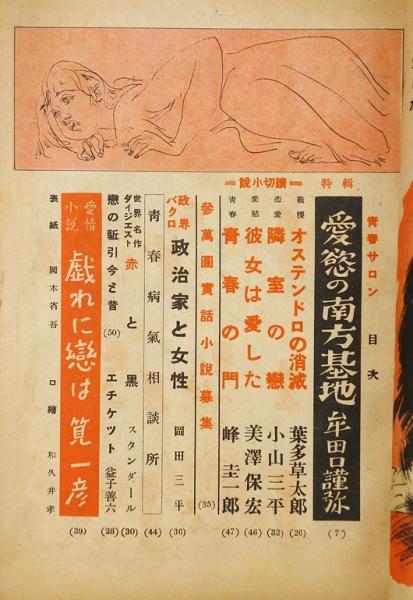 青春サロン 目次
特輯
愛慾の南方基地 牟田口謹弥 (7)
＝讀切小說＝
戰慄 オステンドロの消滅 葉多草太郎 (26)
恋愛 隣室の戀 小山三平 (32)
愛慾 彼女は愛した 美澤保宏 (46)
青春 青春の門 峰圭一郎 (47)
參萬圓實話小說募集 (35)
政界バクロ 政治家と女性 岡田三平 (36)
青春病氣相談所 (44)
世界名作ダイジエスト 赤と黑 スタンダール (30)
戀の駈引今と昔 (50) エチケツト 益子善六 (28)
愛情小說 戱れに戀は 筧一彦 (39)
表紙 岡本省吾 口繪 和久井孝